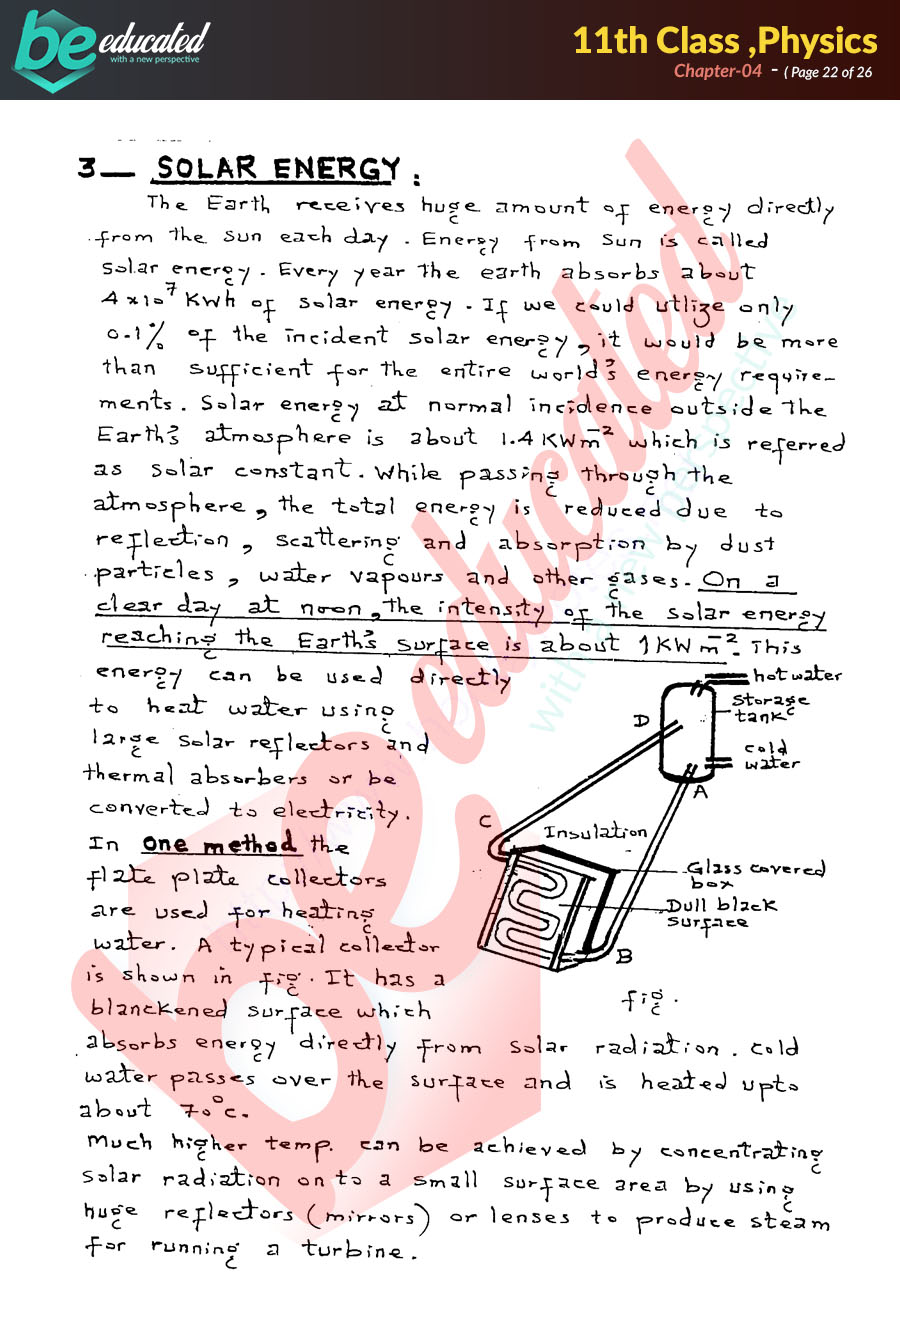 be educated
with a new perspective
11th Class ,Physics
Chapter-04 - ( Page 22 of 26
3— SOLAR ENERGY :
The Earth receives huge amount of energy directly
from the sun each day . Energy from sun is called
solar energy . Every year the earth absorbs about
4×10⁷ KWh of solar energy . If we could utlize only
0.1% of the incident solar energy , it would be more
than sufficient for the entire world's energy require-
ments . Solar energy at normal incidence outside the
Earth's atmosphere is about 1.4 KWm⁻² which is referred
as solar constant . While passing through the
atmosphere , the total energy is reduced due to
reflection , scattering and absorption by dust
particles , water vapours and other gases . On a
clear day at noon , the intensity of the solar energy
reaching the Earth's surface is about 1KWm⁻² . This
energy can be used directly
to heat water using
large solar reflectors and
thermal absorbers or be
converted to electricity .
In one method the
flate plate collectors
are used for heating
water . A typical collector
is shown in fig . It has a
blanckened surface which
absorbs energy directly from solar radiation . cold
water passes over the surface and is heated upto
about 70°c .
Much higher temp. can be achieved by concentrating
solar radiation on to a small surface area by using
huge reflectors (mirrors) or lenses to produce steam
for running a turbine .
hot water
storage
tank
D
cold
water
A
C
Insulation
Glass covered
box
Dull black
surface
B
fig .
be educated
with a new perspective